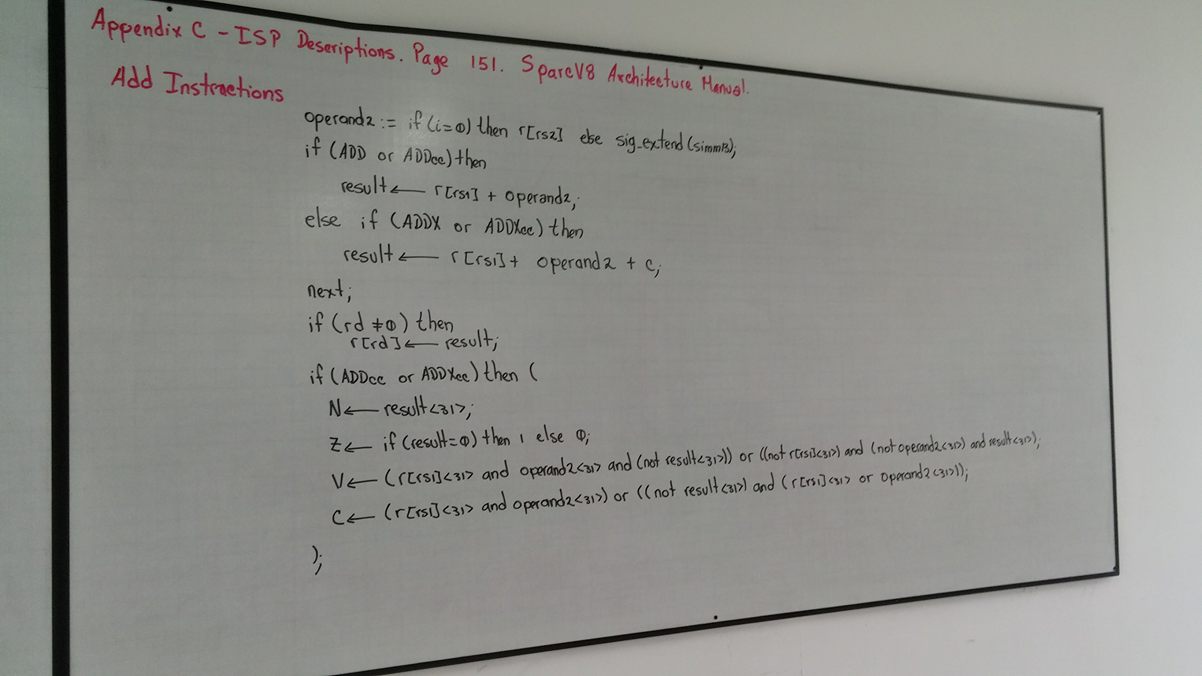 Appendix C - ISP Descriptions. Page 151. SparcV8 Architecture Manual.
Add Instructions
operand2 := if (i=0) then r[rs2] else sig_extend(simm13);
if (ADD or ADDcc) then
result ← r[rs1] + operand2;
else if (ADDX or ADDXcc) then
result ← r[rs1] + operand2 + c;
next;
if (rd ≠ 0) then
r[rd] ← result;
if (ADDcc or ADDXcc) then (
N ← result<31>;
Z ← if (result=0) then 1 else 0;
V ← (r[rs1]<31> and operand2<31> and (not result<31>)) or ((not r[rs1]<31>) and (not operand2<31>) and result<31>);
C ← (r[rs1]<31> and operand2<31>) or ((not result<31>) and (r[rs1]<31> or operand2<31>));
);